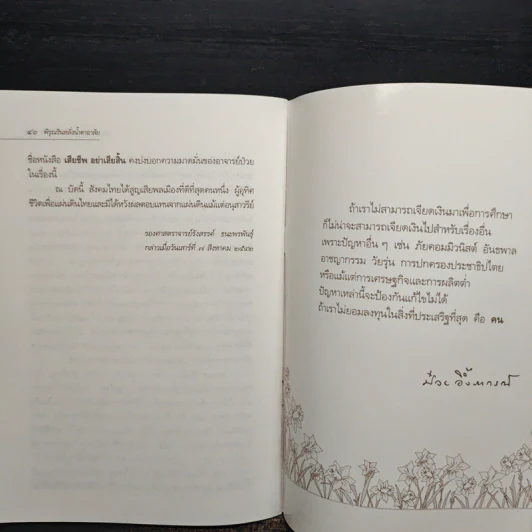 ๘๖ พิรุณรินหลั่งน้ำตาอาลัย
ชื่อหนังสือ เสียชีพ อย่าเสียสิ้น คงบ่งบอกความมาดมั่นของอาจารย์ป๋วย
ในเรื่องนี้
ณ บัดนี้ สังคมไทยได้สูญเสียพลเมืองที่ดีที่สุดคนหนึ่ง ผู้อุทิศ
ชีวิตเพื่อแผ่นดินไทยและมิได้หวังผลตอบแทนจากแผ่นดินแม้แต่อนุสาวรีย์
รองศาสตราจารย์รังสรรค์ ธนะพรพันธุ์
กล่าวเมื่อวันเสาร์ที่ ๗ สิงหาคม ๒๕๔๒
ถ้าเราไม่สามารถเจียดเงินมาเพื่อการศึกษา
ก็ไม่น่าจะสามารถเจียดเงินไปสำหรับเรื่องอื่น
เพราะปัญหาอื่น ๆ เช่น ภัยคอมมิวนิสต์ อันธพาล
อาชญากรรม วัยรุ่น การปกครองประชาธิปไตย
หรือแม้แต่การเศรษฐกิจและการผลิตต่ำ
ปัญหาเหล่านี้จะป้องกันแก้ไขไม่ได้
ถ้าเราไม่ยอมลงทุนในสิ่งที่ประเสริฐที่สุด คือ คน
ป๋วย อึ๊งภากรณ์